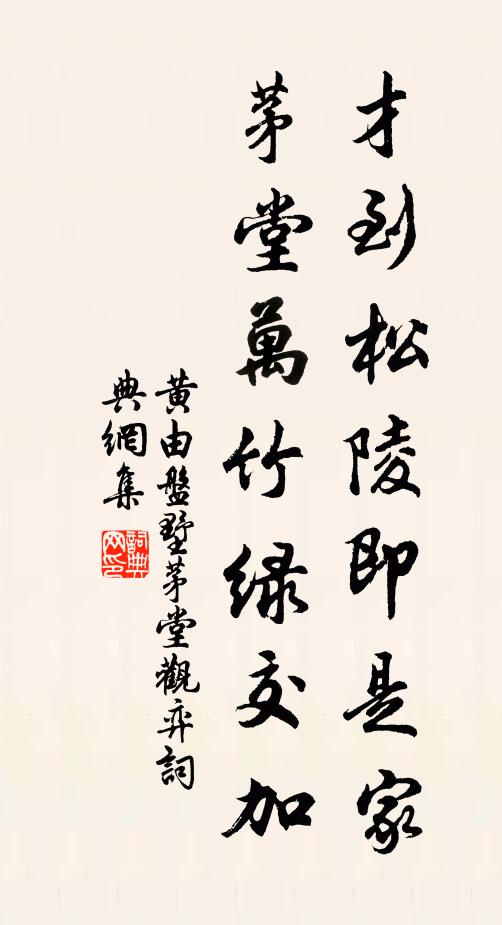 才到松陵即是家
茅堂萬竹緑交加
黄由盤墅茅堂觀弈詞
典網集
詞典
网印